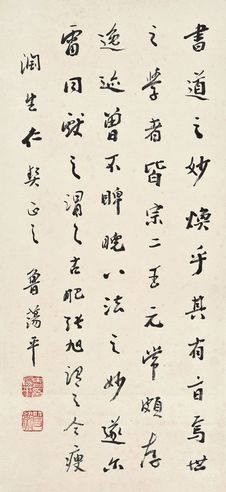 書道之妙煥乎其有旨焉世
之學者皆宗二王元常頗存
逸迹曾不睥睨八法之妙遂尔
雷同獻之謂之古肥張旭謂之今瘦
潤生仁契正之 魯蕩平